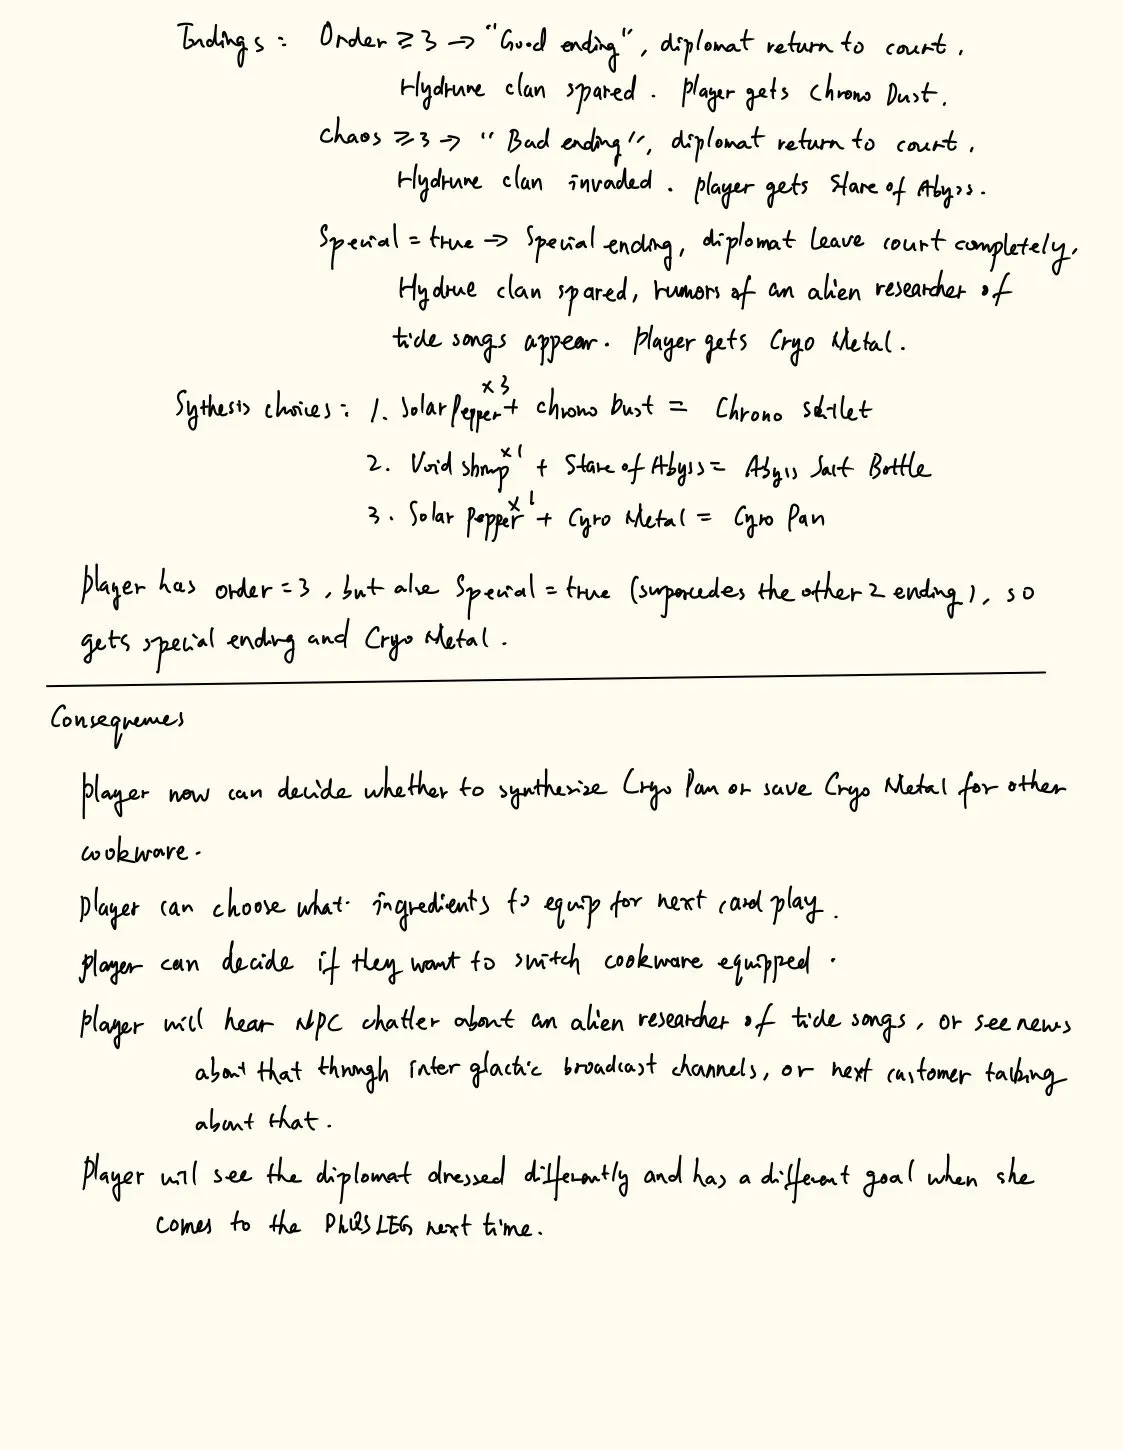 Endings: Order ≥ 3 → "Good ending", diplomat return to court.
Hydrune clan spared. player gets Chrono Dust.
chaos ≥ 3 → "Bad ending", diplomat return to court.
Hydrune clan invaded. player gets Stare of Abyss.
Special = true → Special ending, diplomat leave court completely.
Hydrue clan spared, rumors of an alien researcher of
tide songs appear. player gets Cryo Metal.
Sythesis choices: 1. Solar Pepper x3 + chrono Dust = Chrono
2. Void shrmp x1 + Stare of Abyss = Abyss Salt Bottle
3. Solar Pepper x1 + Cyro Metal = Cyro Pan
player has order = 3, but also Special = true (supercedes the other 2 ending), so
gets special ending and Cryo Metal.
Consequences
player now can decide whether to synthesize Cryo Pan or save Cryo Metal for other
cookware.
player can choose what ingredients to equip for next card play.
player can decide if they want to switch cookware equipped.
player will hear NPC chatter about an alien researcher of tide songs, or see news
about that through inter glactic broadcast channels, or next customer talking
about that.
player will see the diplomat dressed differently and has a different goal when she
comes to the next time.